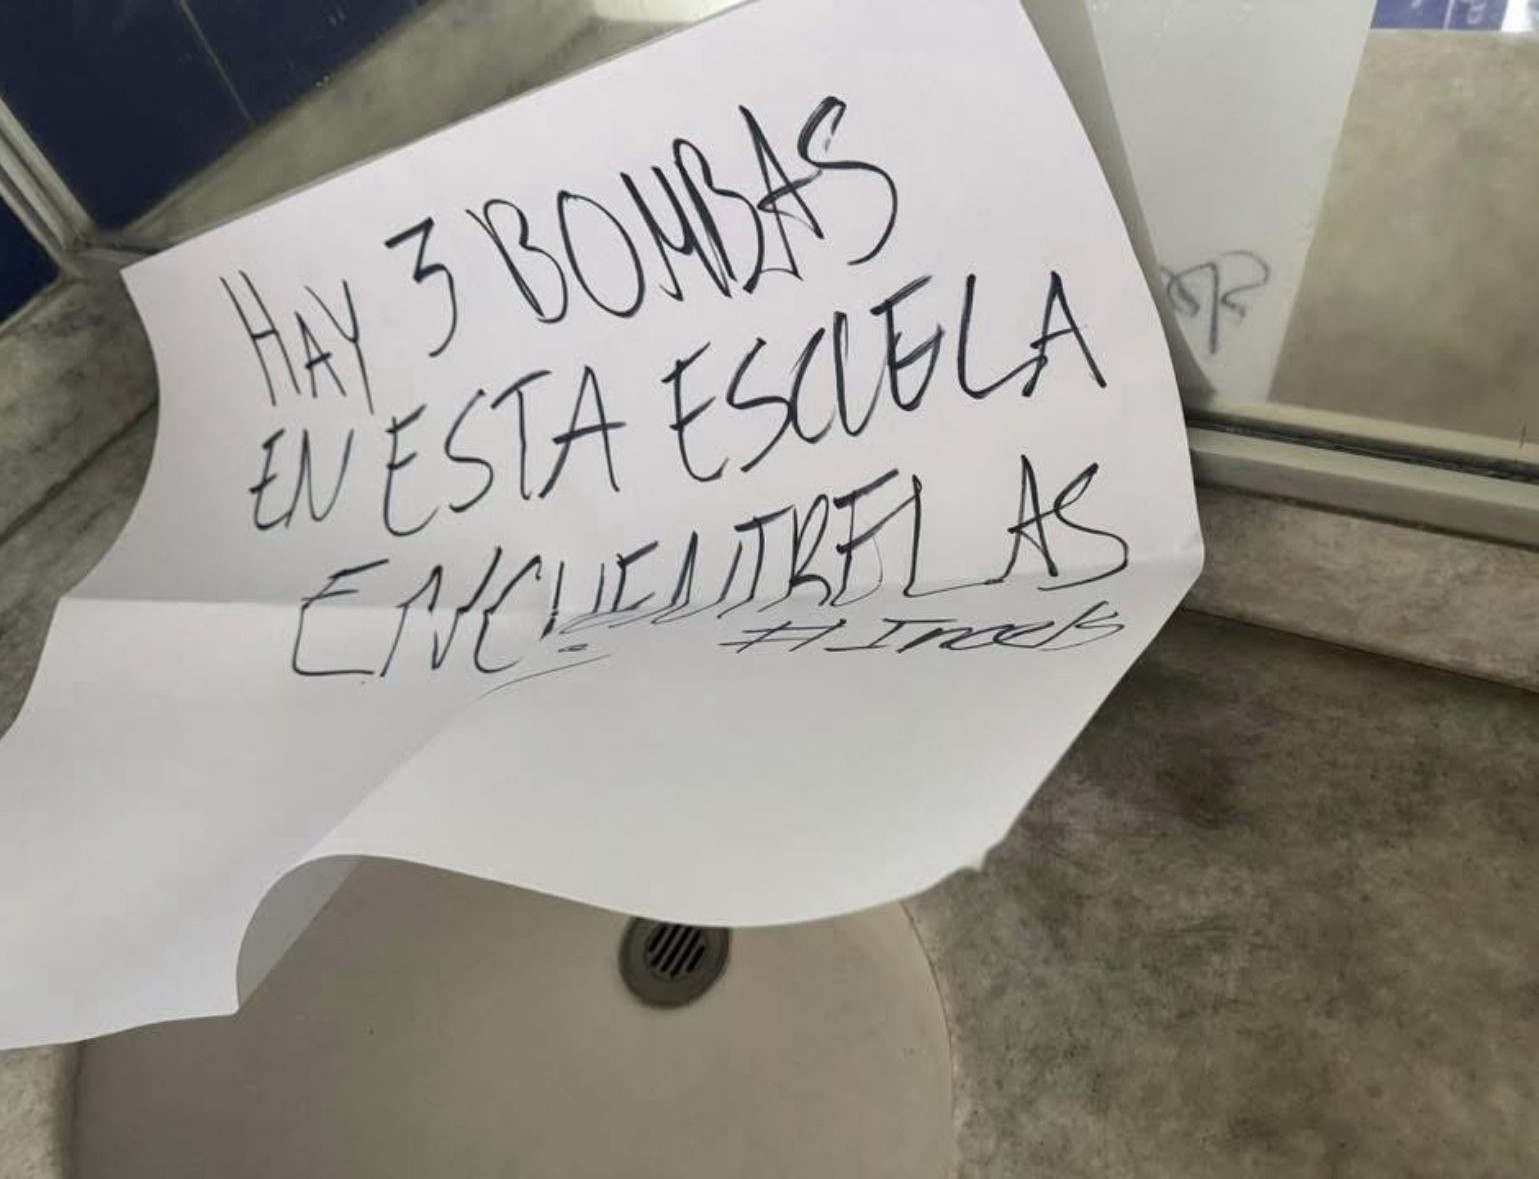 HAY 3 BOMBAS
EN ESTA ESCUELA
ENCUENTRELAS
#Incels